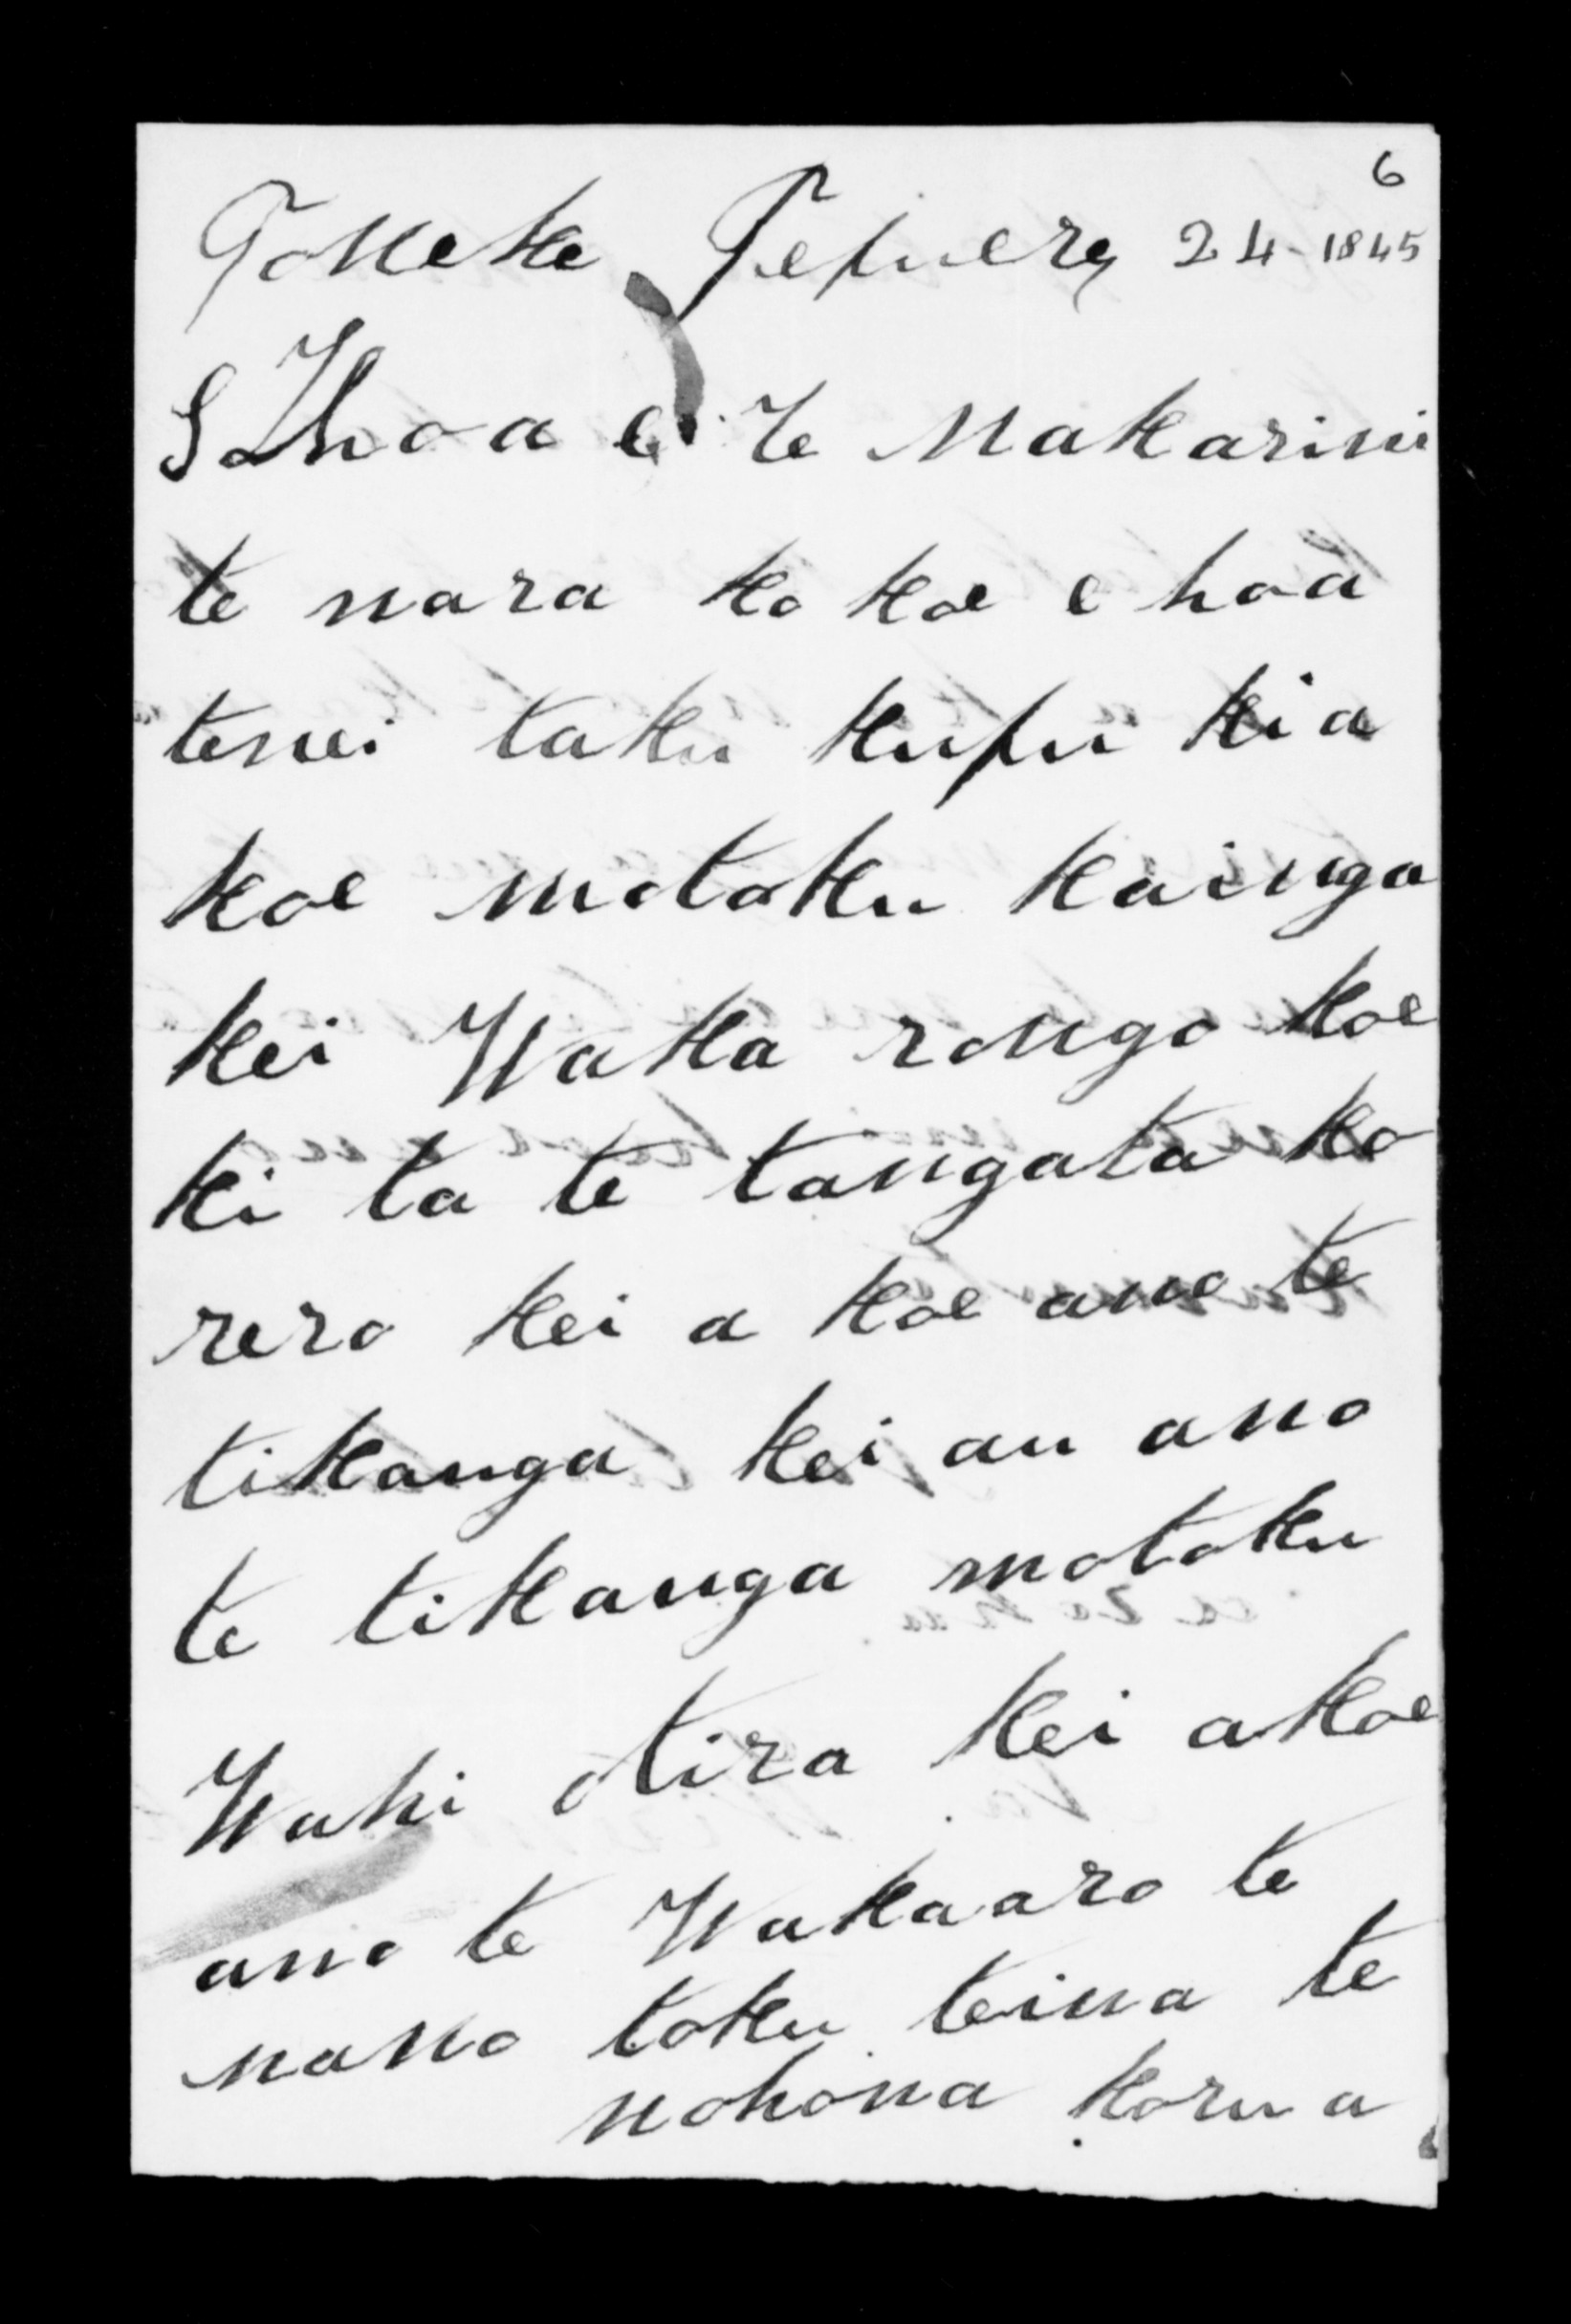 6
Poneke Pepuere 24 - 1845
E Ihoa e Te Makarini
te nara ko koe e hoa
tenei taku kupu kia
koe motoku kainga
kei Waka rongo koe
ki ta te tangata ko
rero kei a koe ano te
tikanga kei au ano
te tikanga motoku
Wahi otira kei akoe
ano te Wakaaro te
nano toku teina te
nohona korua